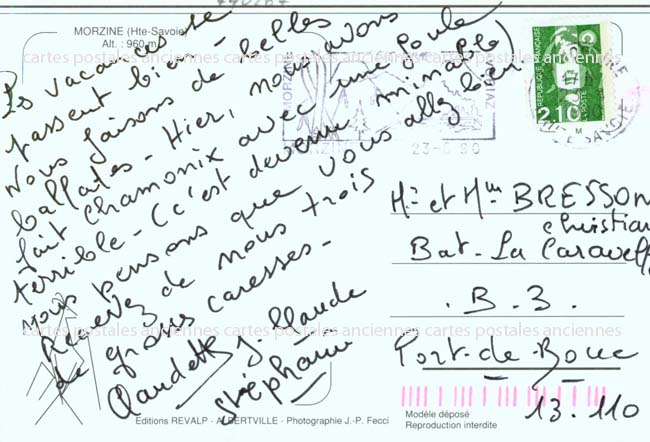 MORZINE (Hte-Savoie)
Alt. : 960 m
Les vacances se
passent bien.
Nous faisons de belles
ballades. Hier, nous avons
fait Chamonix avec une foule
terrible. (c'est devenu minable)
Nous pensons que vous allez bien
Recevez de nous trois
de grosses caresses.
Claudette J. Claude
Stéphanie
MORZINE
23-8-90
REPUBLIQUE FRANÇAISE
2,10
LA POSTE
HTE SAVOIE
Mr et Mme BRESSON
Christian
Bat. La Caravelle
B. 3.
Port-de-Bouc
13.110
cartes postales anciennes cartes postales anciennes cartes postales anciennes
cartes postales anciennes cartes postales anciennes cartes postales anciennes
Éditions REVALP - ALBERTVILLE - Photographie J.-P. Fecci
Modèle déposé
Reproduction interdite